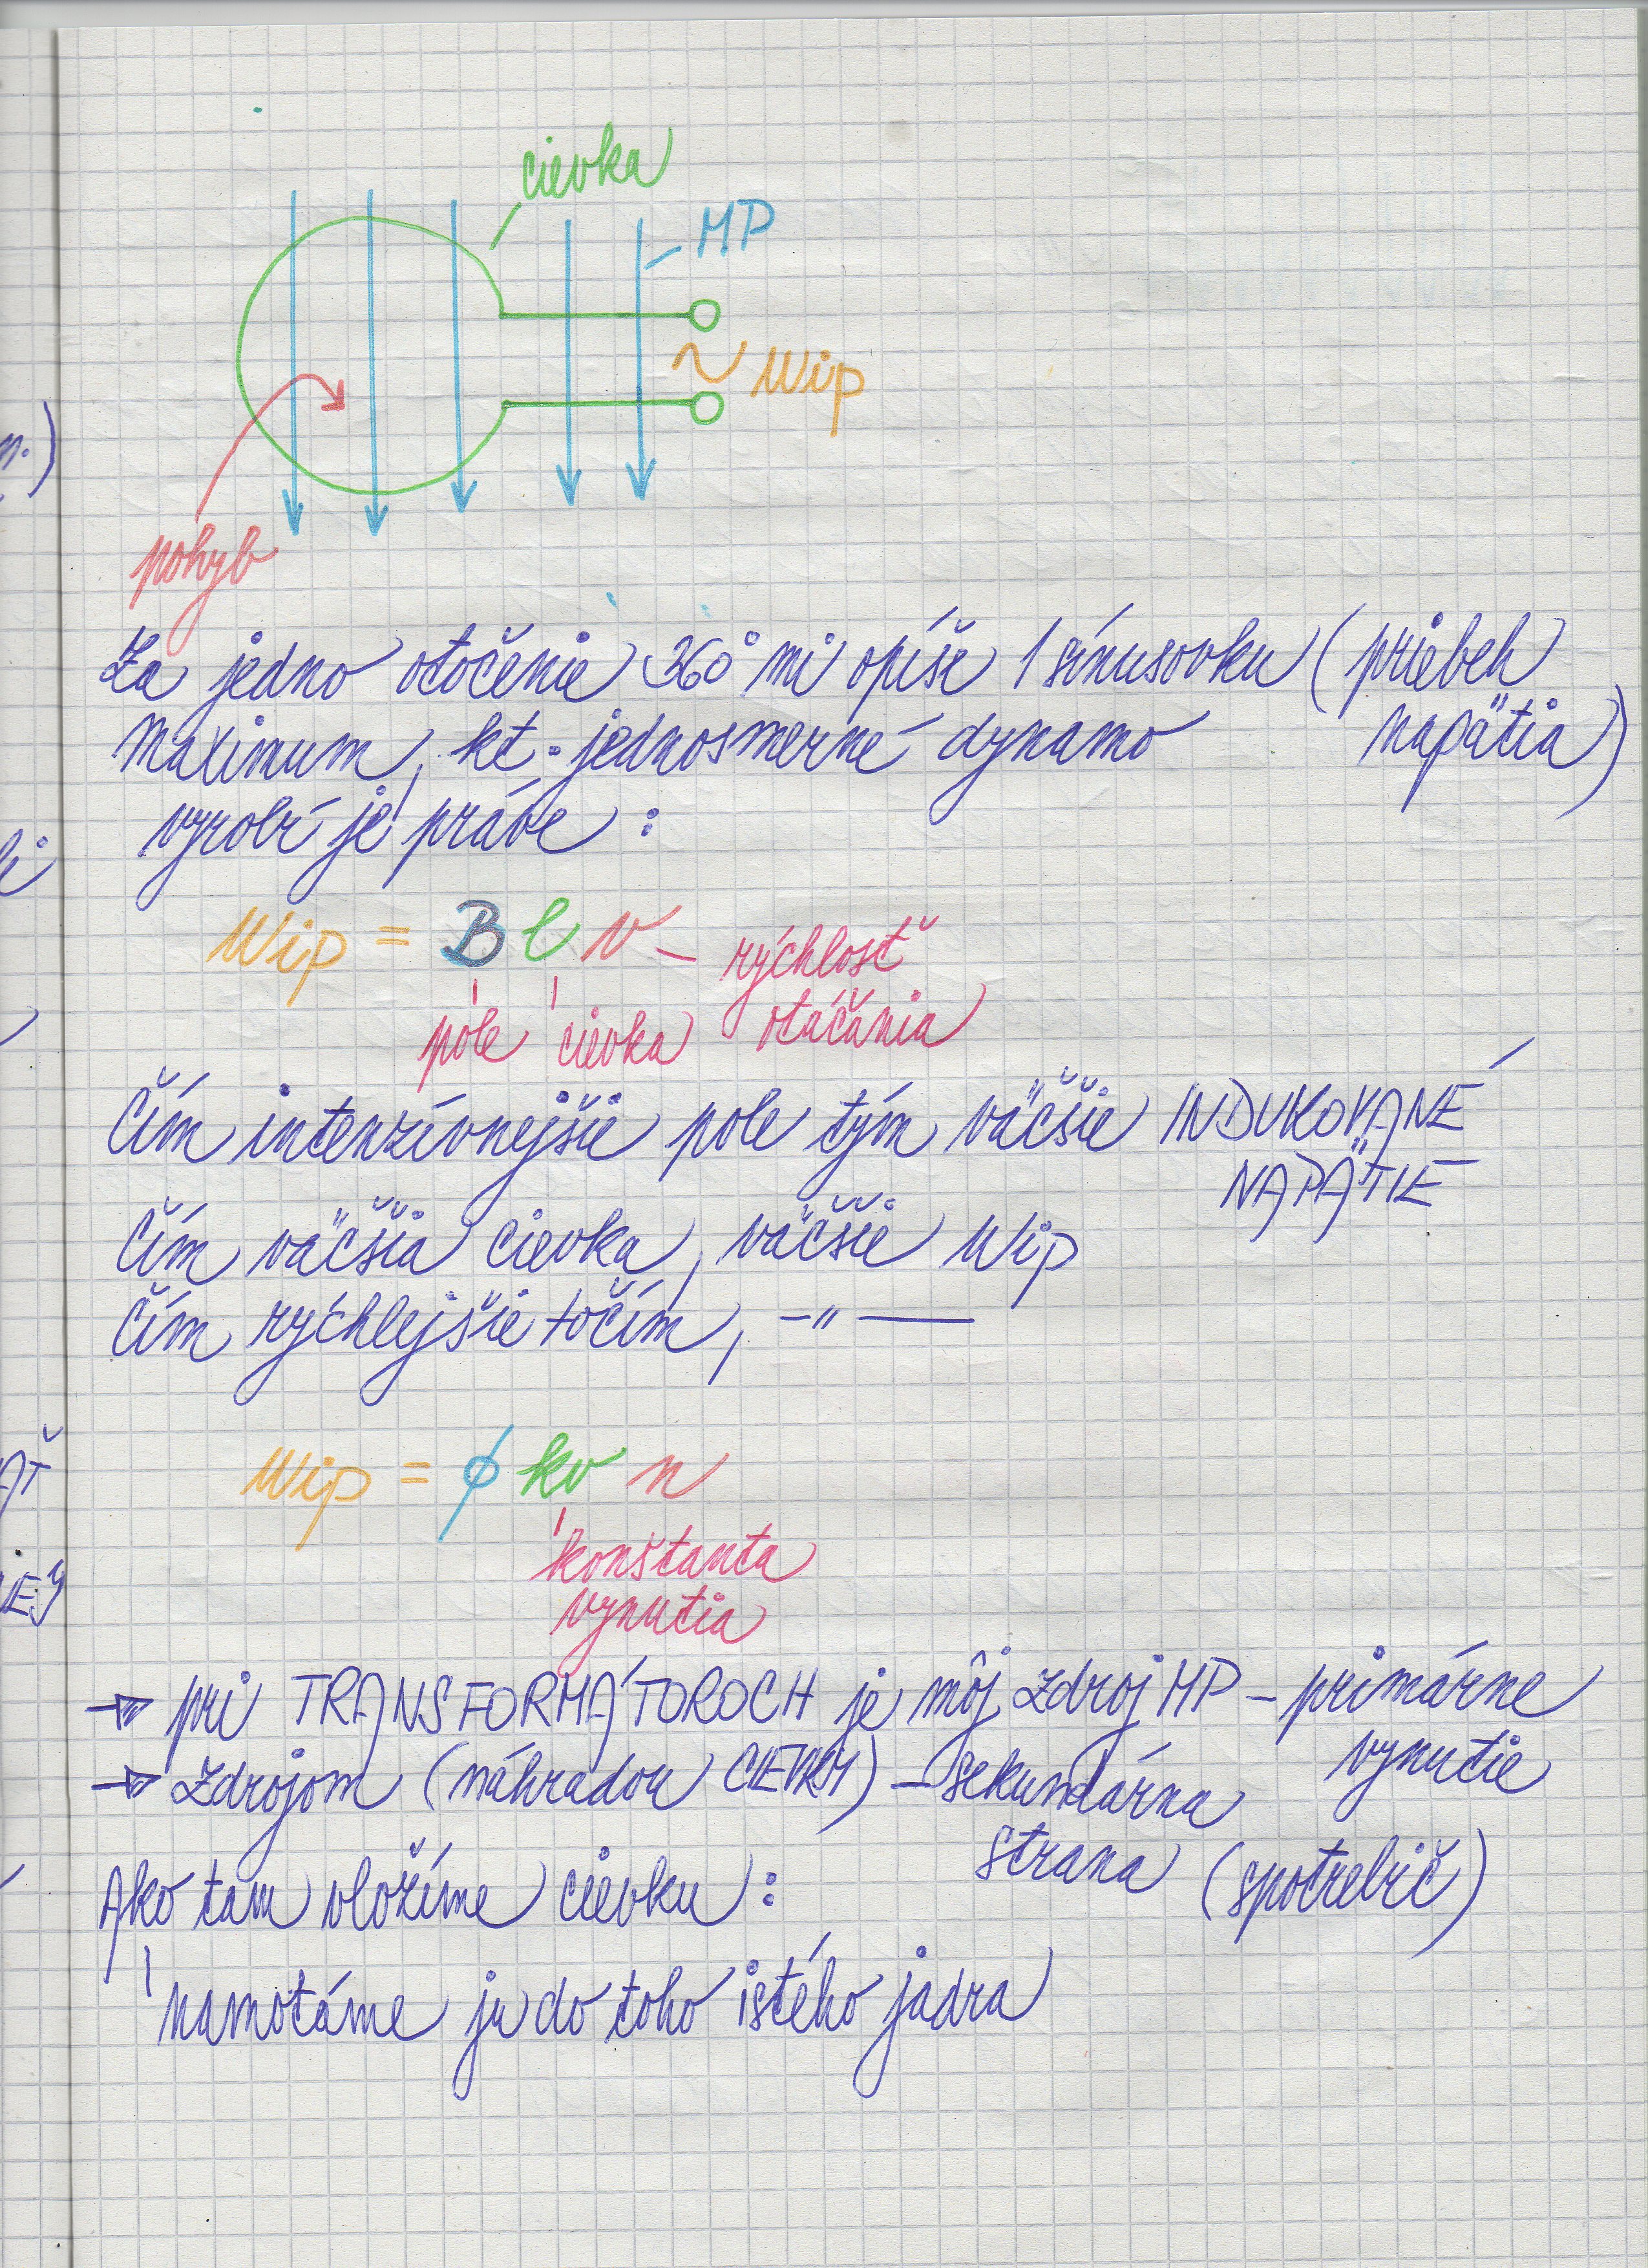 cievka
MP
~ Uip
pohyb
Za jedno otočenie 360° mi opíše 1 sínusovku (priebeh
napätia)
Maximum, kt. jednosmerné dynamo
vyrobí je práve :
Uip = B l v – rýchlosť
otáčania
pole cievka
Čím intenzívnejšie pole tým väčšie INDUKOVANÉ
NAPÄTIE
Čím väčšia cievka, väčšie Uip
Čím rýchlejšie točím, –"–
Uip = ϕ kv n
konštanta
vynutia
→ pri TRANSFORMÁTOROCH je môj zdroj MP – primárne
vynutie
→ Zdrojom (náhradou CIEVKY) – sekundárna
strana (spotrebič)
Ako tam vložíme cievku :
namotáme ju do toho istého jadra